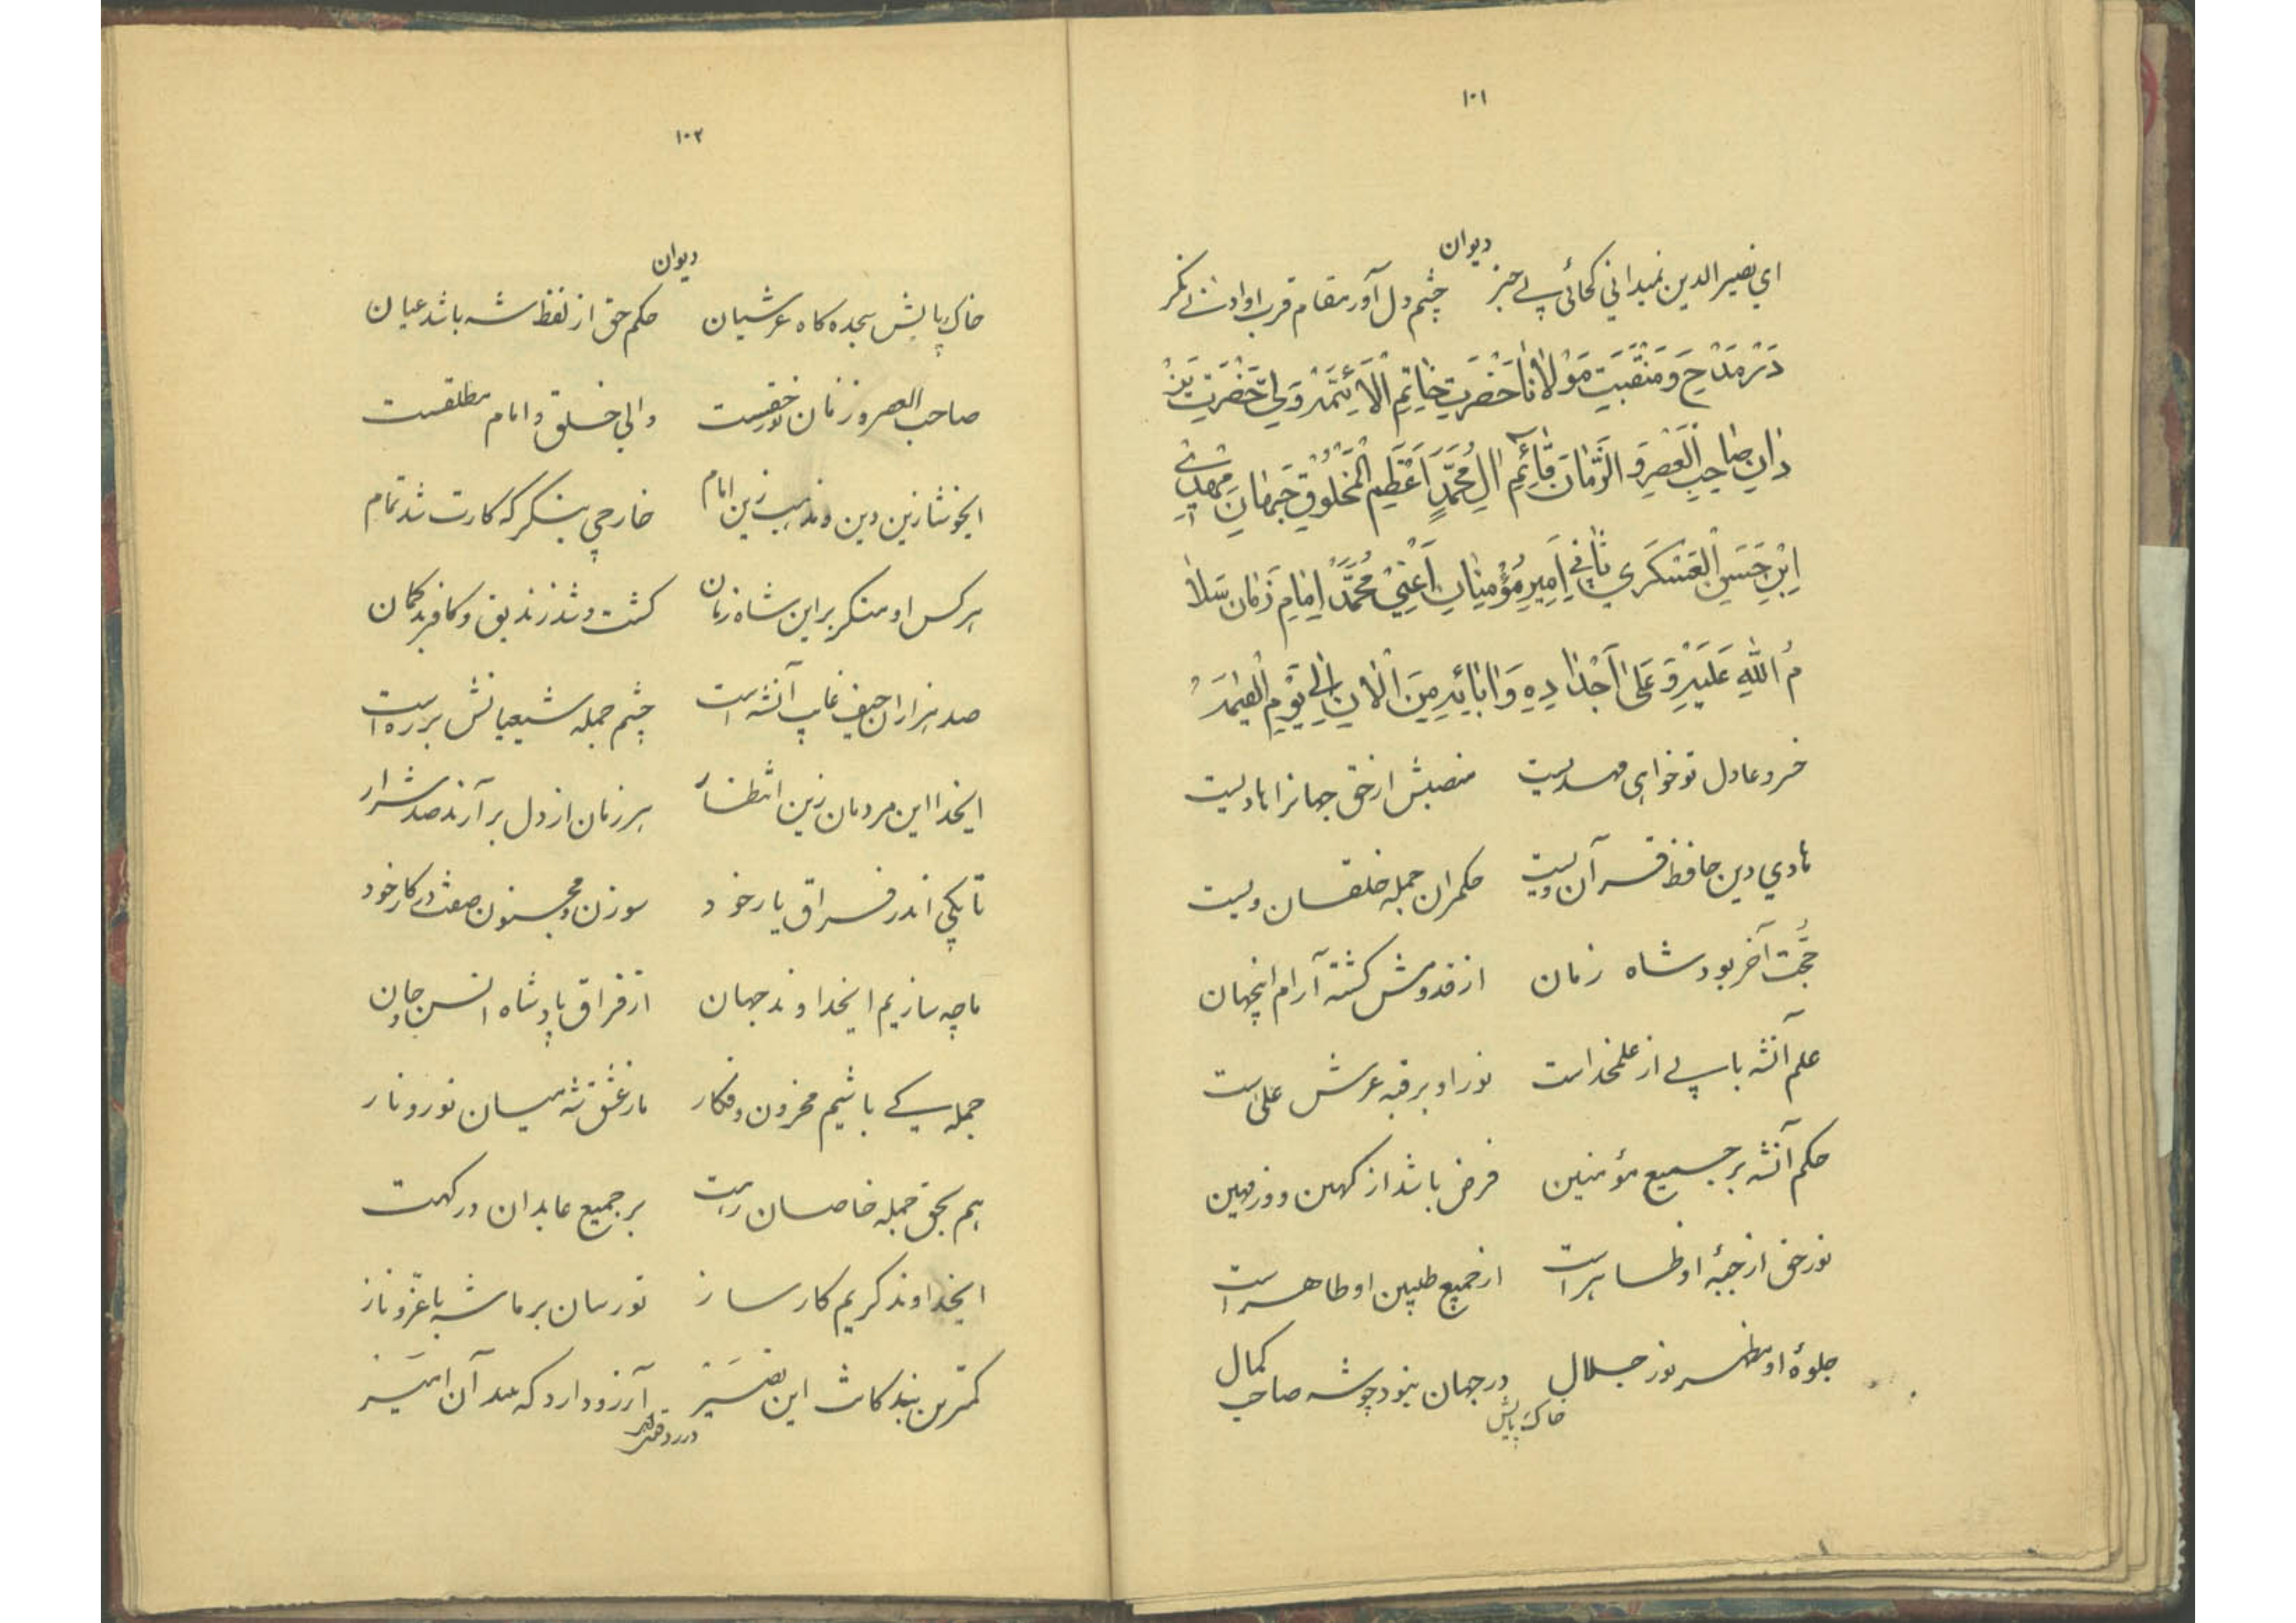 ۱۰۱
دیوان
ای نصیر الدین نمیدانی کجائی بی خبر چشم دل آور مقام قرب او ادنی نکر
دَر مَدْحِ وَ مَنْقَبَتِ مَوْلانا حَضْرَتِ خاتِمِ الْاَئِمَّه وَلیِّ حَضْرَتِ یَزْ
دان صاحِبِ الْعَصْرِ وَ الزَّمان قائِمِ الِ مُحَمَّدٍ اَعْظَمِ الْمَخْلُوقِ جَهان مهدی
اِبْنِ حَسَنِ الْعَسْکَری ثانی اَمیرِ مُؤْمِنان اَعْنی مُحَمَّدْ اِمامِ زَمان سَلا
مُ اللهِ عَلَیْهِ وَ عَلی اَجْدادِهِ وَ ابائِهِ مِنَ الْانِ اِلی یَوْمِ الْقِیمَه
خسرو عادل تو خواهی مهدیست منصبش از حق جهانرا هادیست
هادی دین حافظ قرآن ویست حکمران جمله خلقان ویست
حُجّت آخر بود شاه زمان از قدومش کشته آرام اینجهان
علم آنشه با پی از علمخداست نور او بر قبه عرش علی است
حکم آنشه بر جمیع مؤمنین فرض باشد از کهین و وز مهین
نور حق از جبهٔ او ظاهر است از جمیع طیبین او طاهر است
جلوهٔ او مظهر نور جلال در جهان نبود چو شه صاحب کمال
خاک پایش
۱۰۲
دیوان
خاک پایش سجده کاه عرشیان حکم حق از لفظ شه باشد عیان
صاحب العصر و زمان نور حقست والی خلق و امام مطلقست
ایخوشا زین دین و مذهب زین امام خارجی بنکر که کارت شد تمام
هر کس او منکر بر این شاه زمان کشت و شد زندیق و کافر بد کمان
صد هزاران حیف غایب آنشه است چشم جمله شیعیانش بر ره است
ایخدا این مردمان زین انتظار هر زمان از دل بر آرند صد شرار
تا بکی اندر فراق یار خود سوزن و مجنون صفت در کار خود
ما چه سازیم ایخداوند جهان از فراق پادشاه انس و جان
جمله کی باشیم محزون و فکار ما ز عشق شه میان نور و نار
هم بحق جمله خاصان رهت بر جمیع عابدان درکهت
ایخداوند کریم کار ساز تو رسان بر ما شه با عزّ و ناز
کمترین بندکانت این نصیر آرزو دارد که عبد آن امیر